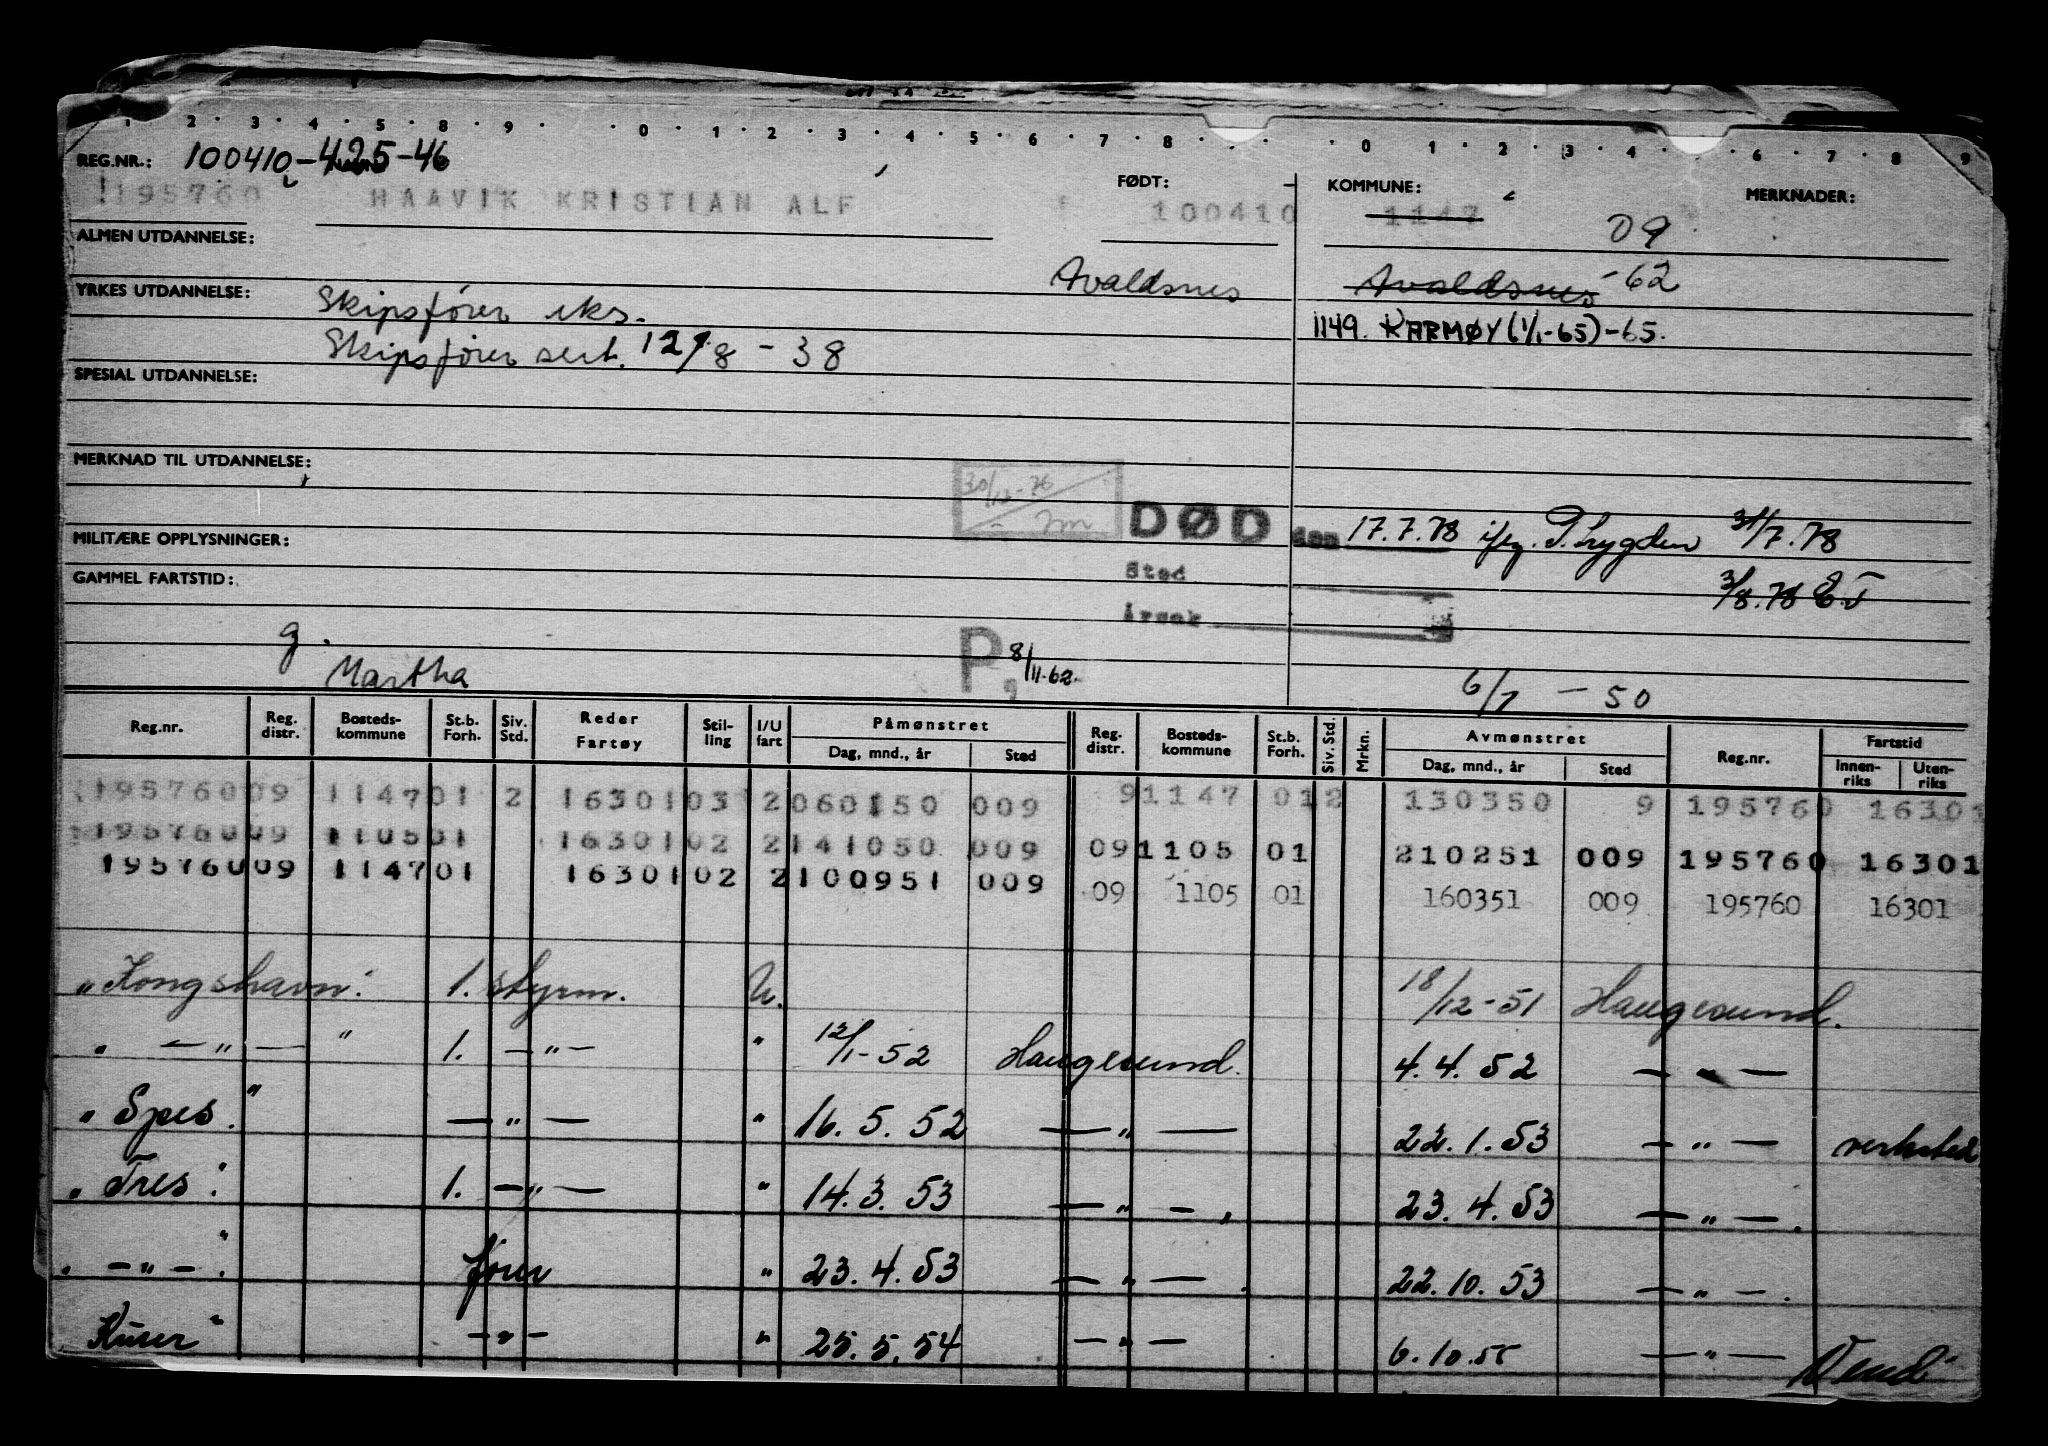 1 · 2 · 3 · 4 · 5 · 8 · 9 · · 0 · 1 · 2 · 3 · 4 · 5 · 6 · 7 · 8 · · · 0 · 1 · 2 · 3 · 4 · · 6 · 7 · 8 · 9
REG.NR.: 100410-425-46
FØDT: KOMMUNE: MERKNADER:
195760 HAAVIK KRISTIAN ALF 100410 1147
09
ALMEN UTDANNELSE:
Avaldsnes Avaldsnes -62
YRKES UTDANNELSE: Skipsfører eks.
1149. KARMØY (1/1-65)-65.
Skipsfører sert. 12/8 - 38
SPESIAL UTDANNELSE:
MERKNAD TIL UTDANNELSE:
30/12-76
DØD den 17.7.78 iflg. P. Lygden 31/7.78
MILITÆRE OPPLYSNINGER:
Sted
GAMMEL FARTSTID:
3/8.78 ET
Årsak
g.
P, 8/11-62.
Martha
6/1 - 50
Reg.nr. Reg. distr. Bosteds-kommune St.b. Forh. Siv. Std. Reder Fartøy Stil-ling I/U fart Påmønstret Dag, mnd., år Sted Reg. distr. Bosteds-kommune St.b. Forh. Siv. Std. Mrkn. Avmønstret Dag, mnd., år Sted Reg.nr. Fartstid Innen-riks Uten-riks
195760 09 1147 01 2 16301 03 2 060150 009 9 1147 01 2 130350 9 195760 16301
195760 09 1105 01 16301 02 2 141050 009 09 1105 01 210251 009 195760 16301
195760 09 1147 01 16301 02 2 100951 009 09 1105 01 160351 009 195760 16301
"Kongshavn" 1. styrm. U. 18/12-51 Haugesund.
" — " — " 1. — " — " 12/1-52 Haugesund. 4.4.52 — " —
"Spes." — " — " 16.5.52 — " — 22.1.53 — " — verksted
"Tres." 1. — " — " 14.3.53 — " — 23.4.53 — " — .
" — " — ." fører " 23.4.53 — " — . 22.10.53 — " — .
"Kurer" — " — " 25.5.54 — " — 6.10.55 — " — Vend